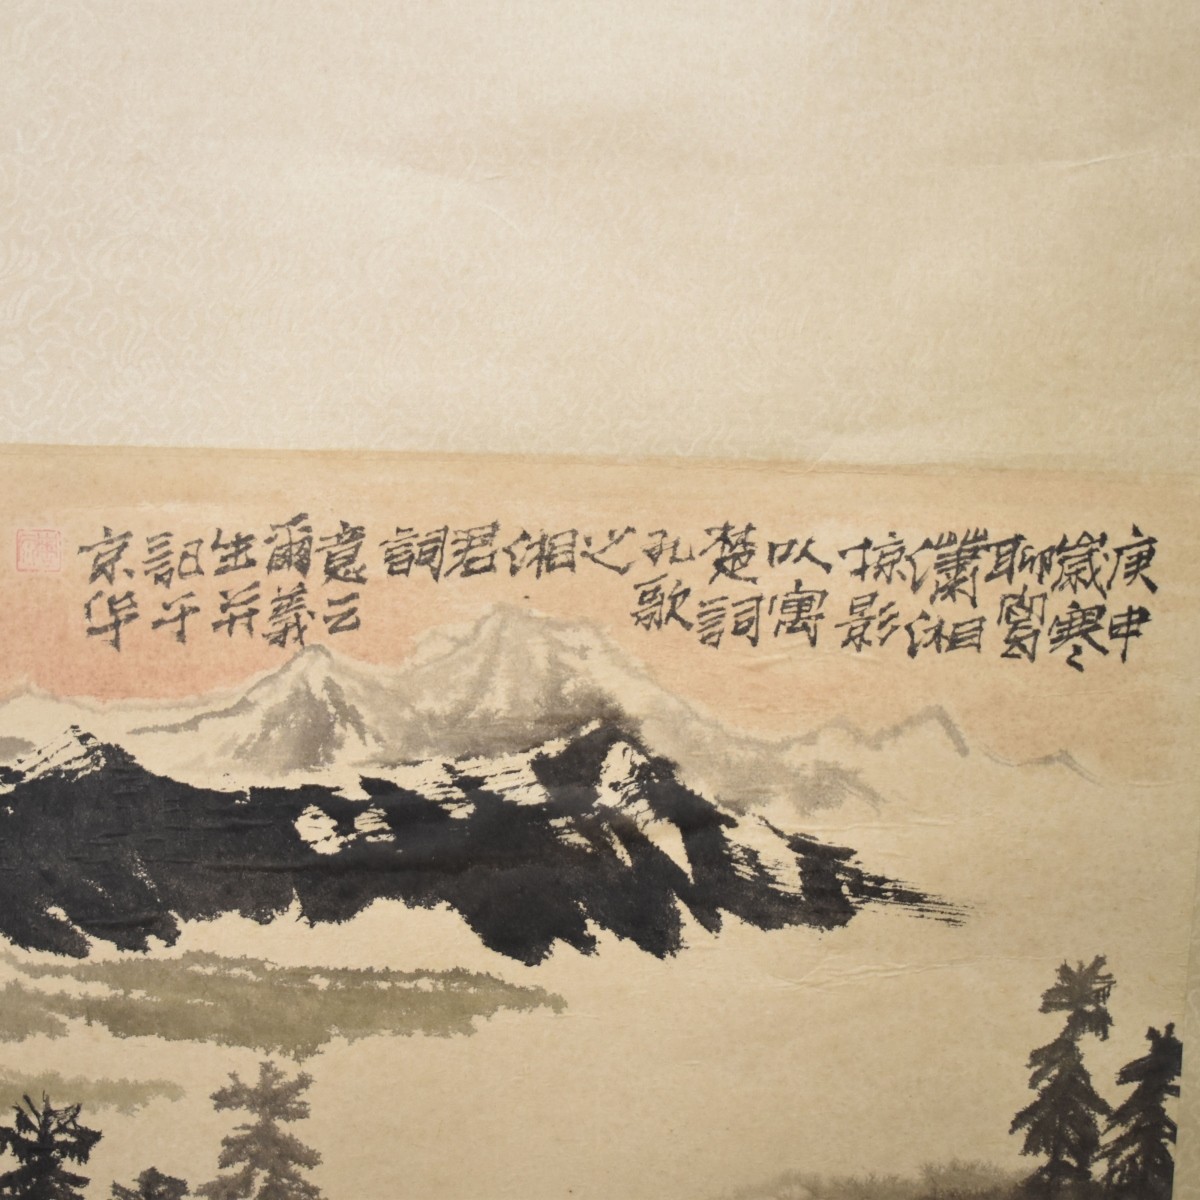 庚申
歲寒
聊寫
瀟湘
掠影
以寓
楚詞
九歌
之
湘
君
詞
意云
爾義
生并
記于
京华